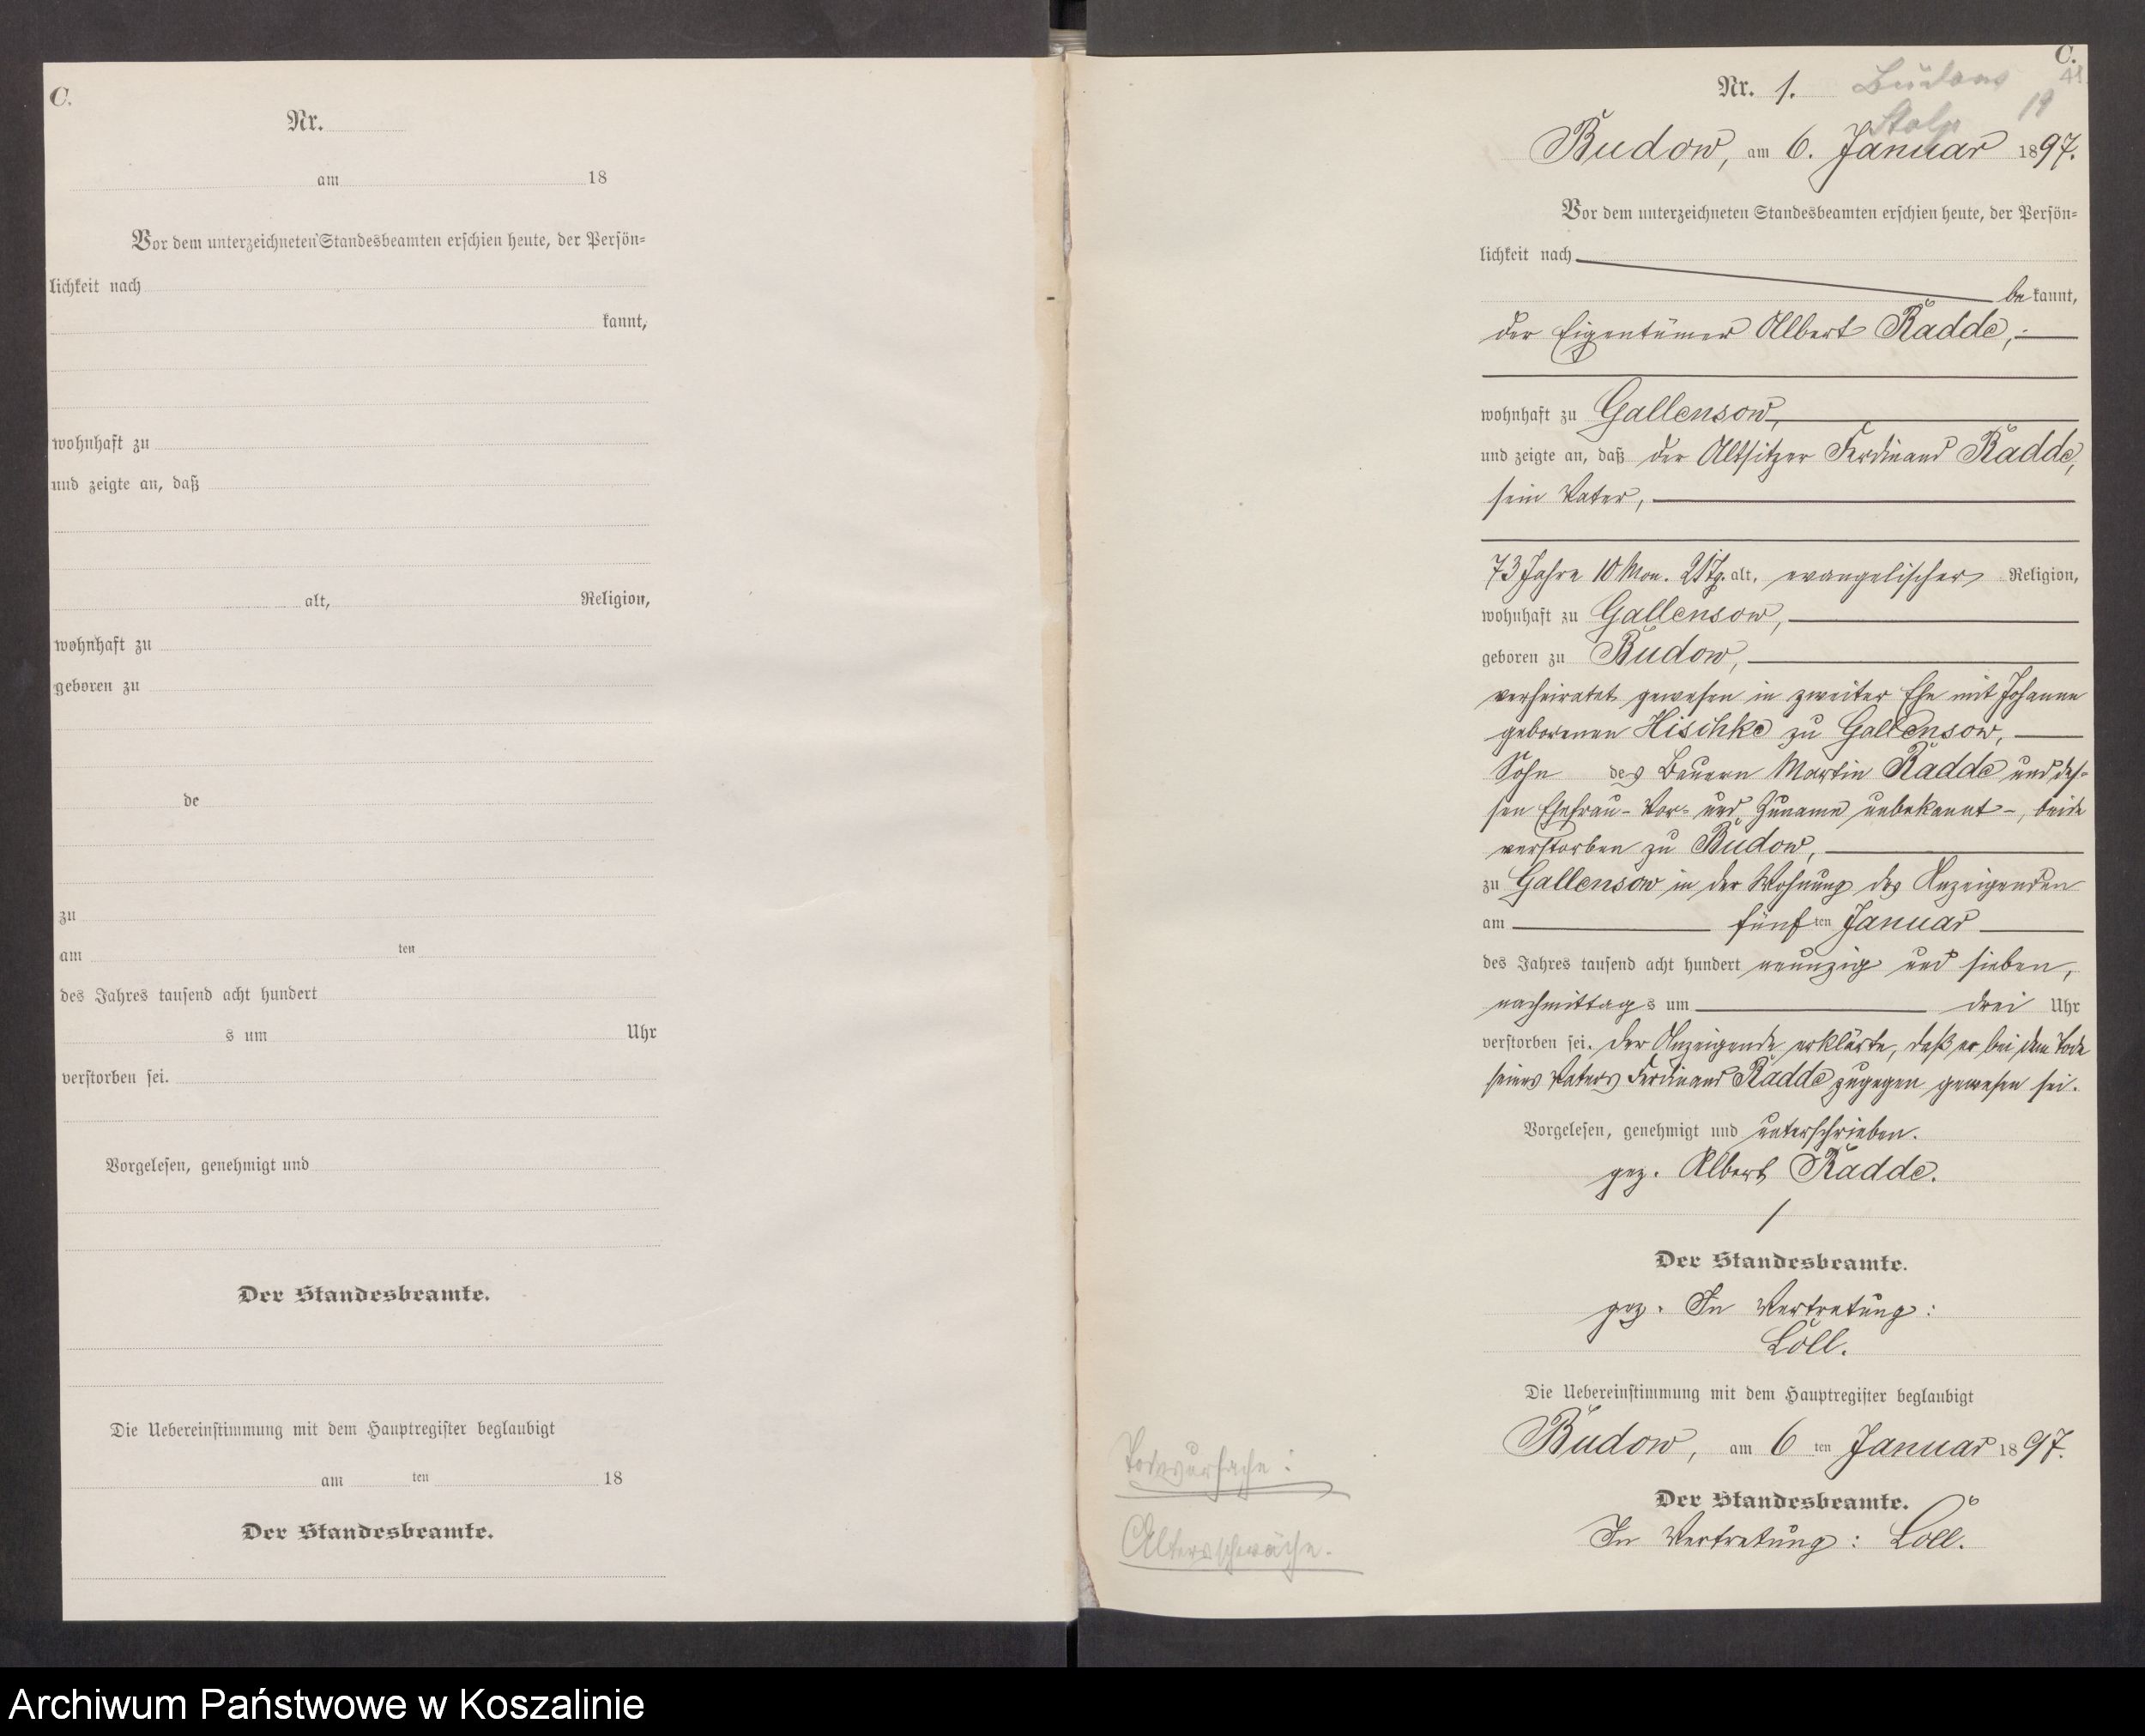 C.
Nr.
am 18
Vor dem unterzeichneten Standesbeamten erschien heute, der Persön-
lichkeit nach
kannt,
wohnhaft zu
und zeigte an, daß
alt, Religion,
wohnhaft zu
geboren zu
de
zu
am ten
des Jahres tausend acht hundert
s um Uhr
verstorben sei.
Vorgelesen, genehmigt und
Der Standesbeamte.
Die Uebereinstimmung mit dem Hauptregister beglaubigt
am ten 18
Der Standesbeamte.
C.
Nr. 1.
Stolp 19
Budow, am 6. Januar 1897.
Vor dem unterzeichneten Standesbeamten erschien heute, der Persön-
lichkeit nach
bekannt,
der Eigentümer Albert Radde,
wohnhaft zu Gallensow,
und zeigte an, daß der Altsitzer Ferdinand Radde,
sein Vater,
73 Jahre 10 Mon. Tg. alt, evangelischer Religion,
wohnhaft zu Gallensow,
geboren zu Budow,
verheiratet gewesen in zweiter Ehe mit Johanne
geborenen Hischke zu Gallensow,
Sohn des Bauern Martin Radde und des-
sen Ehefrau - Vor- und Zuname unbekannt -, beide
verstorben zu Budow,
zu Gallensow in der Wohnung des Anzeigenden
am fünften Januar
des Jahres tausend acht hundert neunzig und sieben,
nachmittags um drei Uhr
verstorben sei. Der Anzeigende erklärte, daß er bei dem Tode
seines Vaters Ferdinand Radde zugegen gewesen sei.
Vorgelesen, genehmigt und unterschrieben.
gez. Albert Radde.
Der Standesbeamte.
gez. In Vertretung:
Löll.
Die Uebereinstimmung mit dem Hauptregister beglaubigt
Budow, am 6 ten Januar 1897.
Der Standesbeamte.
In Vertretung: Löll.
Todesursache:
Altersschwäche.
Archiwum Państwowe w Koszalinie